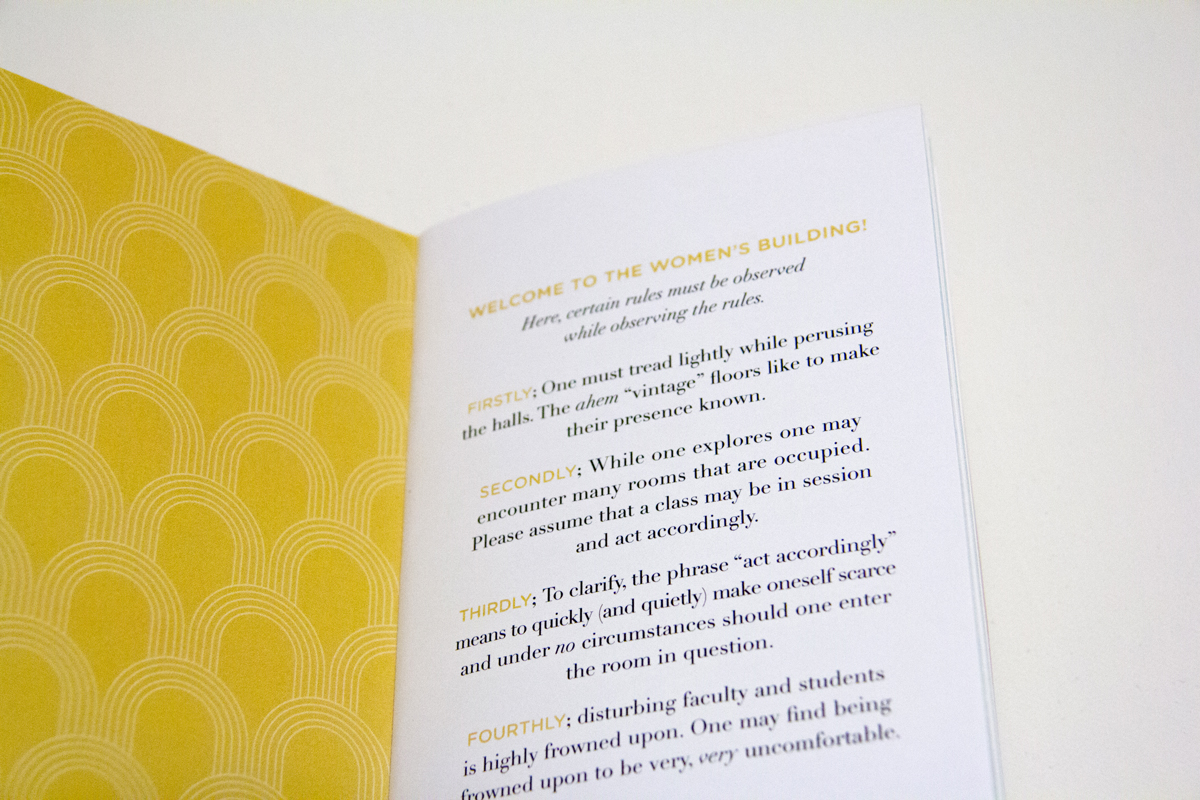 WELCOME TO THE WOMEN'S BUILDING!
Here, certain rules must be observed
while observing the rules.
FIRSTLY; One must tread lightly while perusing
the halls. The ahem “vintage” floors like to make
their presence known.
SECONDLY; While one explores one may
encounter many rooms that are occupied.
Please assume that a class may be in session
and act accordingly.
THIRDLY; To clarify, the phrase “act accordingly”
means to quickly (and quietly) make oneself scarce
and under no circumstances should one enter
the room in question.
FOURTHLY; disturbing faculty and students
is highly frowned upon. One may find being
frowned upon to be very, very uncomfortable.